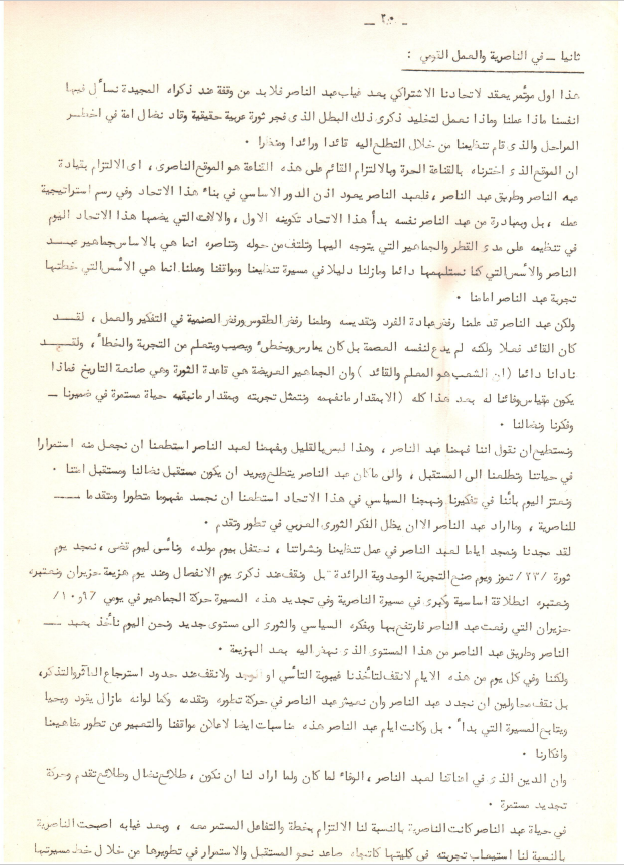 - ٣٠ -
ثانيا - في الناصرية والعمل القومي :
هذا اول مؤتمر يعقد لاتحادنا الاشتراكي بعد غياب عبد الناصر فلابد من وقفة عند ذكراه المجيدة نسأل فيها
انفسنا ماذا عملنا وماذا نعمل لتخليد ذكرى ذلك البطل الذى فجر ثورة عربية حقيقية وقاد نضال امة في اخطر
المراحل والذى قام تنظيمنا من خلال التطلع اليه قائدا ورائدا ومنارا .
ان الموقع الذى اخترناه بالقناعة الحرة وبالالتزام القائم على هذه القناعة هو الموقع الناصرى ، اى الالتزام بقيادة
عبد الناصر وطريق عبد الناصر ، فلعبد الناصر يعود اذن الدور الاساسي في بناء هذا الاتحاد وفي رسم استراتيجية
عمله ، بل وبمبادرة من عبد الناصر نفسه بدأ هذا الاتحاد تكوينه الاول ، والالاف التي يضمها هذا الاتحاد اليوم
في تنظيمه على مدى القطر والجماهير التي يتوجه اليها وتلتف من حوله وتناصره انما هي بالاساس جماهير عبد
الناصر والأسس التي كنا نستلهمها دائما ومازلنا دليلا في مسيرة تنظيمنا ومواقفنا وعملنا انما هي الأسس التي خطتها
تجربة عبد الناصر امامنا .
ولكن عبد الناصر قد علمنا رفض عبادة الفرد وتقديسه وعلمنا رفض الطقوس ورفض الصنمية في التفكير والعمل ، لقد
كان القائد فعلا ولكنه لم يدع لنفسه العصمة بل كان يمارس ويخطئ ويصيب ويتعلم من التجربة والخطأ ، ولقد
نادانا دائما ( ان الشعب هو المعلم والقائد ) وان الجماهير العريضة هي قاعدة الثورة وهي صانعة التاريخ فماذا
يكون مقياس وفائنا له بعد هذا كله ( الا بمقدار مانفهمه ونتمثل تجربته وبمقدار مانبقيه حياة مستمرة في ضميرنا -
وفكرنا ونضالنا .
ونستطيع ان نقول اننا فهمنا عبد الناصر ، وهذا ليس بالقليل وبفهمنا لعبد الناصر استطعنا ان نجعل منه استمرارا
في حياتنا وتطلعنا الى المستقبل ، والى ماكان عبد الناصر يتطلع ويريد ان يكون مستقبل نضالنا ومستقبل امتنا .
ونعتز اليوم بأننا في تفكيرنا ونهجنا السياسي في هذا الاتحاد استطعنا ان نجسد مفهوما متطورا ومتقدما -
للناصرية ، وماراد عبد الناصر الا ان يظل الفكر الثورى العربي في تطور وتقدم .
لقد مجدنا ونمجد اياما لعبد الناصر في عمل تنظيمنا ونشراتنا ، نحتفل بيوم مولده ونأسى ليوم قضى ، نمجد يوم
ثورة /٢٣/ تموز ويوم صنع التجربة الوحدوية الرائدة بل ونقف عند ذكرى يوم الانفصال وعند يوم هزيمة حزيران ونعتبره
ونعتبره انطلاقة اساسية وكبرى في مسيرة الناصرية وفي تجديد هذه المسيرة حركة الجماهير في يومي ٩و١٠/
حزيران التي رفعت عبد الناصر فارتفع بها وبفكره السياسي والثورى الى مستوى جديد ونحن اليوم نأخذ بعبد -
الناصر وطريق عبد الناصر من هذا المستوى الذى نهض اليه بعد الهزيمة .
ولكننا وفي كل يوم من هذه الايام لانقف لتأخذنا غيبوبة التأسي او الوجد ولانقف عند حدود استرجاع التأثر والتذكر ،
بل نقف محاولين ان نجدد عبد الناصر وان نعيش عبد الناصر في حركة تطوره وتقدمه وكما لوانه مازال يقود ويحيا
ويتابع المسيرة التي بدأ . بل وكانت ايام عبد الناصر هذه مناسبات ايضا لاعلان مواقفنا والتعبير عن تطور مفاهيمنا
وافكارنا .
وان الدين الذى في اعناقنا لعبد الناصر ، الوفاء لما كان ولما اراد لنا ان نكون ، طلائع نضال وطلائع تقدم وحركة
تجديد مستمرة .
في حياة عبد الناصر كانت الناصرية بالنسبة لنا الالتزام بخطة والتفاعل المستمر معه ، وبعد غيابه اصبحت الناصرية
بالنسبة لنا استيعاب تجربته في كليتها كاتجاه صاعد نحو المستقبل والاستمرار في تطويرها من خلال خط مسيرتها